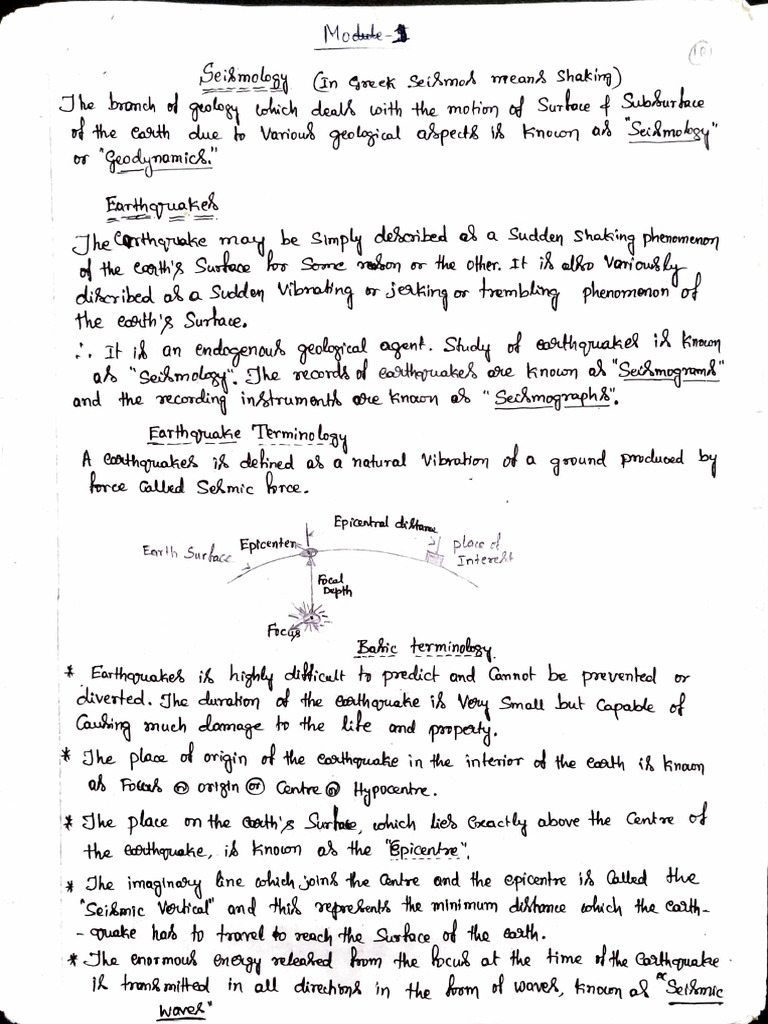 Module-1
101
Seismology (In Greek Seismos means Shaking)
The branch of geology which deals with the motion of Surface & Subsurface
of the earth due to Various geological aspects is known as "Seismology"
or "Geodynamics."
Earthquakes
The earthquake may be simply described as a Sudden Shaking phenomenon
of the earth's Surface for Some reason or the other. It is also Variously
discribed as a Sudden Vibrating or jerking or trembling phenomenon of
the earth's Surface.
∴ It is an endogenous geological agent. Study of earthquakes is known
as "Seismology". The records of earthquakes are known as "Seismograms"
and the recording instruments are known as "Seismographs".
Earthquake Terminology
A earthquakes is defined as a natural Vibration of a ground produced by
force Called Sesmic force.
Epicentral distance
Earth Surface
Epicenter
place of
Interest
Focal
Depth
Focus
Basic terminology
* Earthquakes is highly difficult to predict and Cannot be prevented or
diverted. The duration of the earthquake is Very Small but Capable of
Causing much damage to the life and property.
* The place of origin of the earthquake in the interior of the earth is known
as Focus (or) origin (or) Centre (or) Hypocentre.
* The place on the earth's Surface, which lies exactly above the Centre of
the earthquake, is known as the "Epicentre".
* The imaginary line which joins the Centre and the epicentre is Called the
"Seismic Vertical" and this represents the minimum distance which the earth-
-quake has to travel to reach the Surface of the earth.
* The enormous energy released from the focus at the time of the Earthquake
is transmitted in all directions in the form of waves, known as "Seismic
waves"